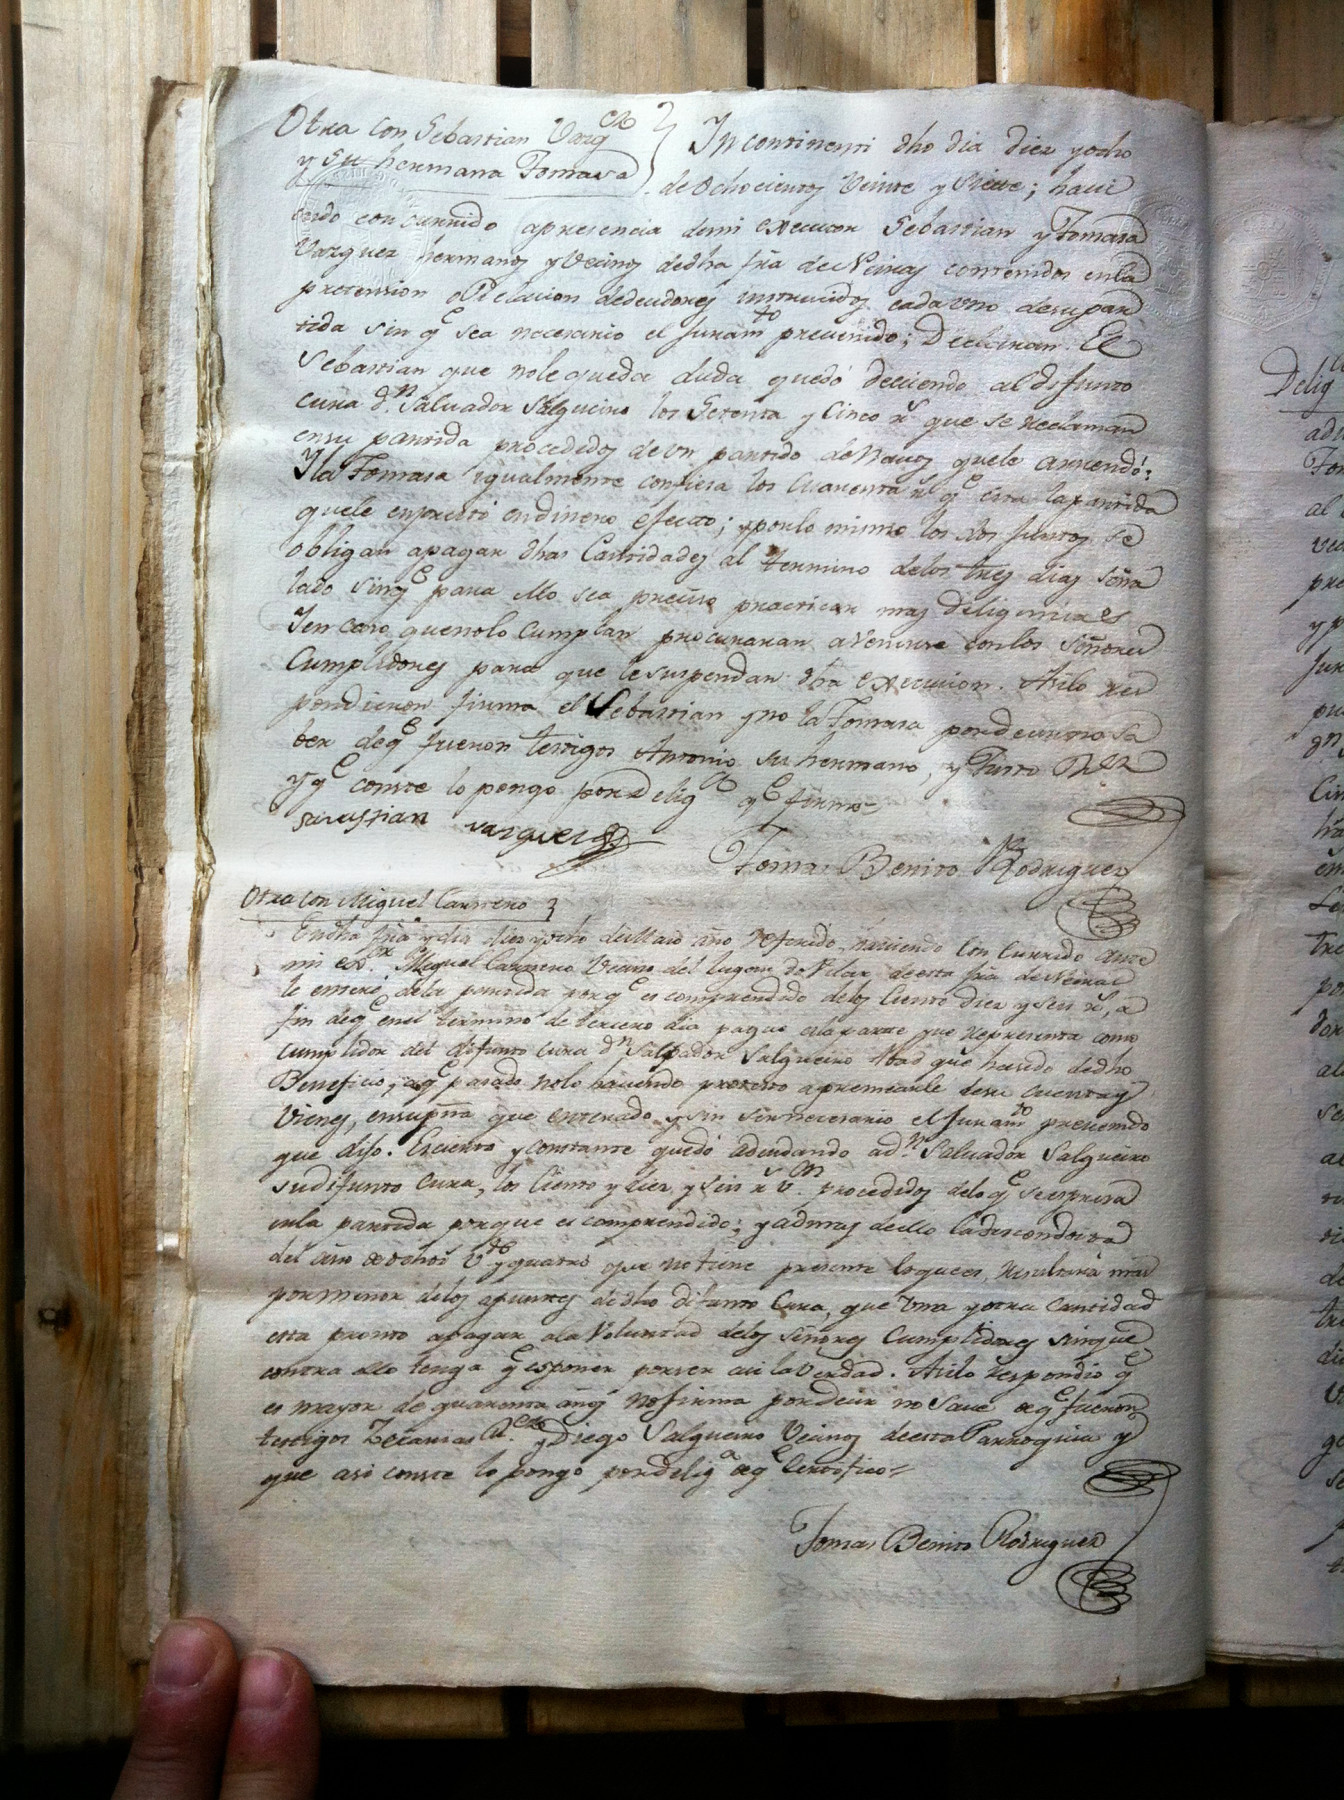 Otra con Sebastian Vazq.ez
y su hermana Tomasa
In continenti dho dia diez yocho
de Ochocientos Veinte y Siete; havi
endo concurrido apresencia demi executor Sebastian y Tomasa
Vazquez hermanos y Vecinos dedha fra de Neiras contenidos enla
pretension o Relacion dedeudores instruidos cada uno desu par
tida sin q.e sea necesario el Juram.to prevenido; Declaran. El
Sebastian que nole queda duda quedó deviendo al difunto
cura d.n Salvador Salgueiro los Setenta y Cinco r.s que se reclaman
ensu partida procedidos de un partido de Navos quele arrendó:
Y la Tomasa ygualmente confiesa los Cuarenta r.s q.e cita la partida
quele emprestó endinero efecto; y porlo mismo los dos Juntos se
obligan apagar dhas Cantidades al termino delos tres dias seña
lado sinq.e para ello sea preciso practicar mas diligencias
Y en caso quenolo Cumplan procuraran avenirse conlos Señores
Cumplidores para que le suspendan dha execucion. Asilo res
pondieron firma el Sebastian yno la Tomasa pordecir no sa
ber deq.e fueron testigos Antonio su hermano, y
y q.e conste lo pongo pordelig.a q.e firmo=
Savastian vazquez
Tomas Benito Rodriguez
Otra con Miguel Carreno
Endha fra y dia diez yocho deMarzo año referido, haviendo concurrido ante
mi ex.or Miguel Carreno Vecino del lugar de Vilar deesta fra deNeiras
le enteré dela partida porq.e es comprendido delos Ciento diez y seis r.s, a
fin deq.e enel termino de tercero dia pague ala parte que representa como
cumplidor del difunto cura d.n Salvador Salgueiro Abad que hasido dedho
Beneficio, yq.e pasado nolo haciendo protesto apremiarle desu cuenta y
Vienes, ensupña que enterado y sin ser necesario el Juram.to prevenido
que dijo. Es cierto y constante quedó adeudando ad.n Salvador Salgueiro
sudifunto Cura, los Ciento y diez y seis r.s v.n procedidos delo q.e seespresa
enla partida porque es comprendido; y ademas deello
del año deochos v.te yquatro que no tiene presente loquees, resultará mas
pormenor delos apuntes de dho difunto Cura, que una yotra Cantidad
esta pronto apagar ala Voluntad delos Señores Cumplidores sinque
contra ello tenga q.e esponer porser asi la Verdad. Asilo respondio q.e
es mayor de quarenta años Nofirma pordecir no Save deq.e fueron
testigos Zecarias y Diego Salgueiro Vecinos deesta Parroquia y
que asi conste lo pongo pordelig.a deq.e Certifico=
Tomas Benito Rodriguez
Delig